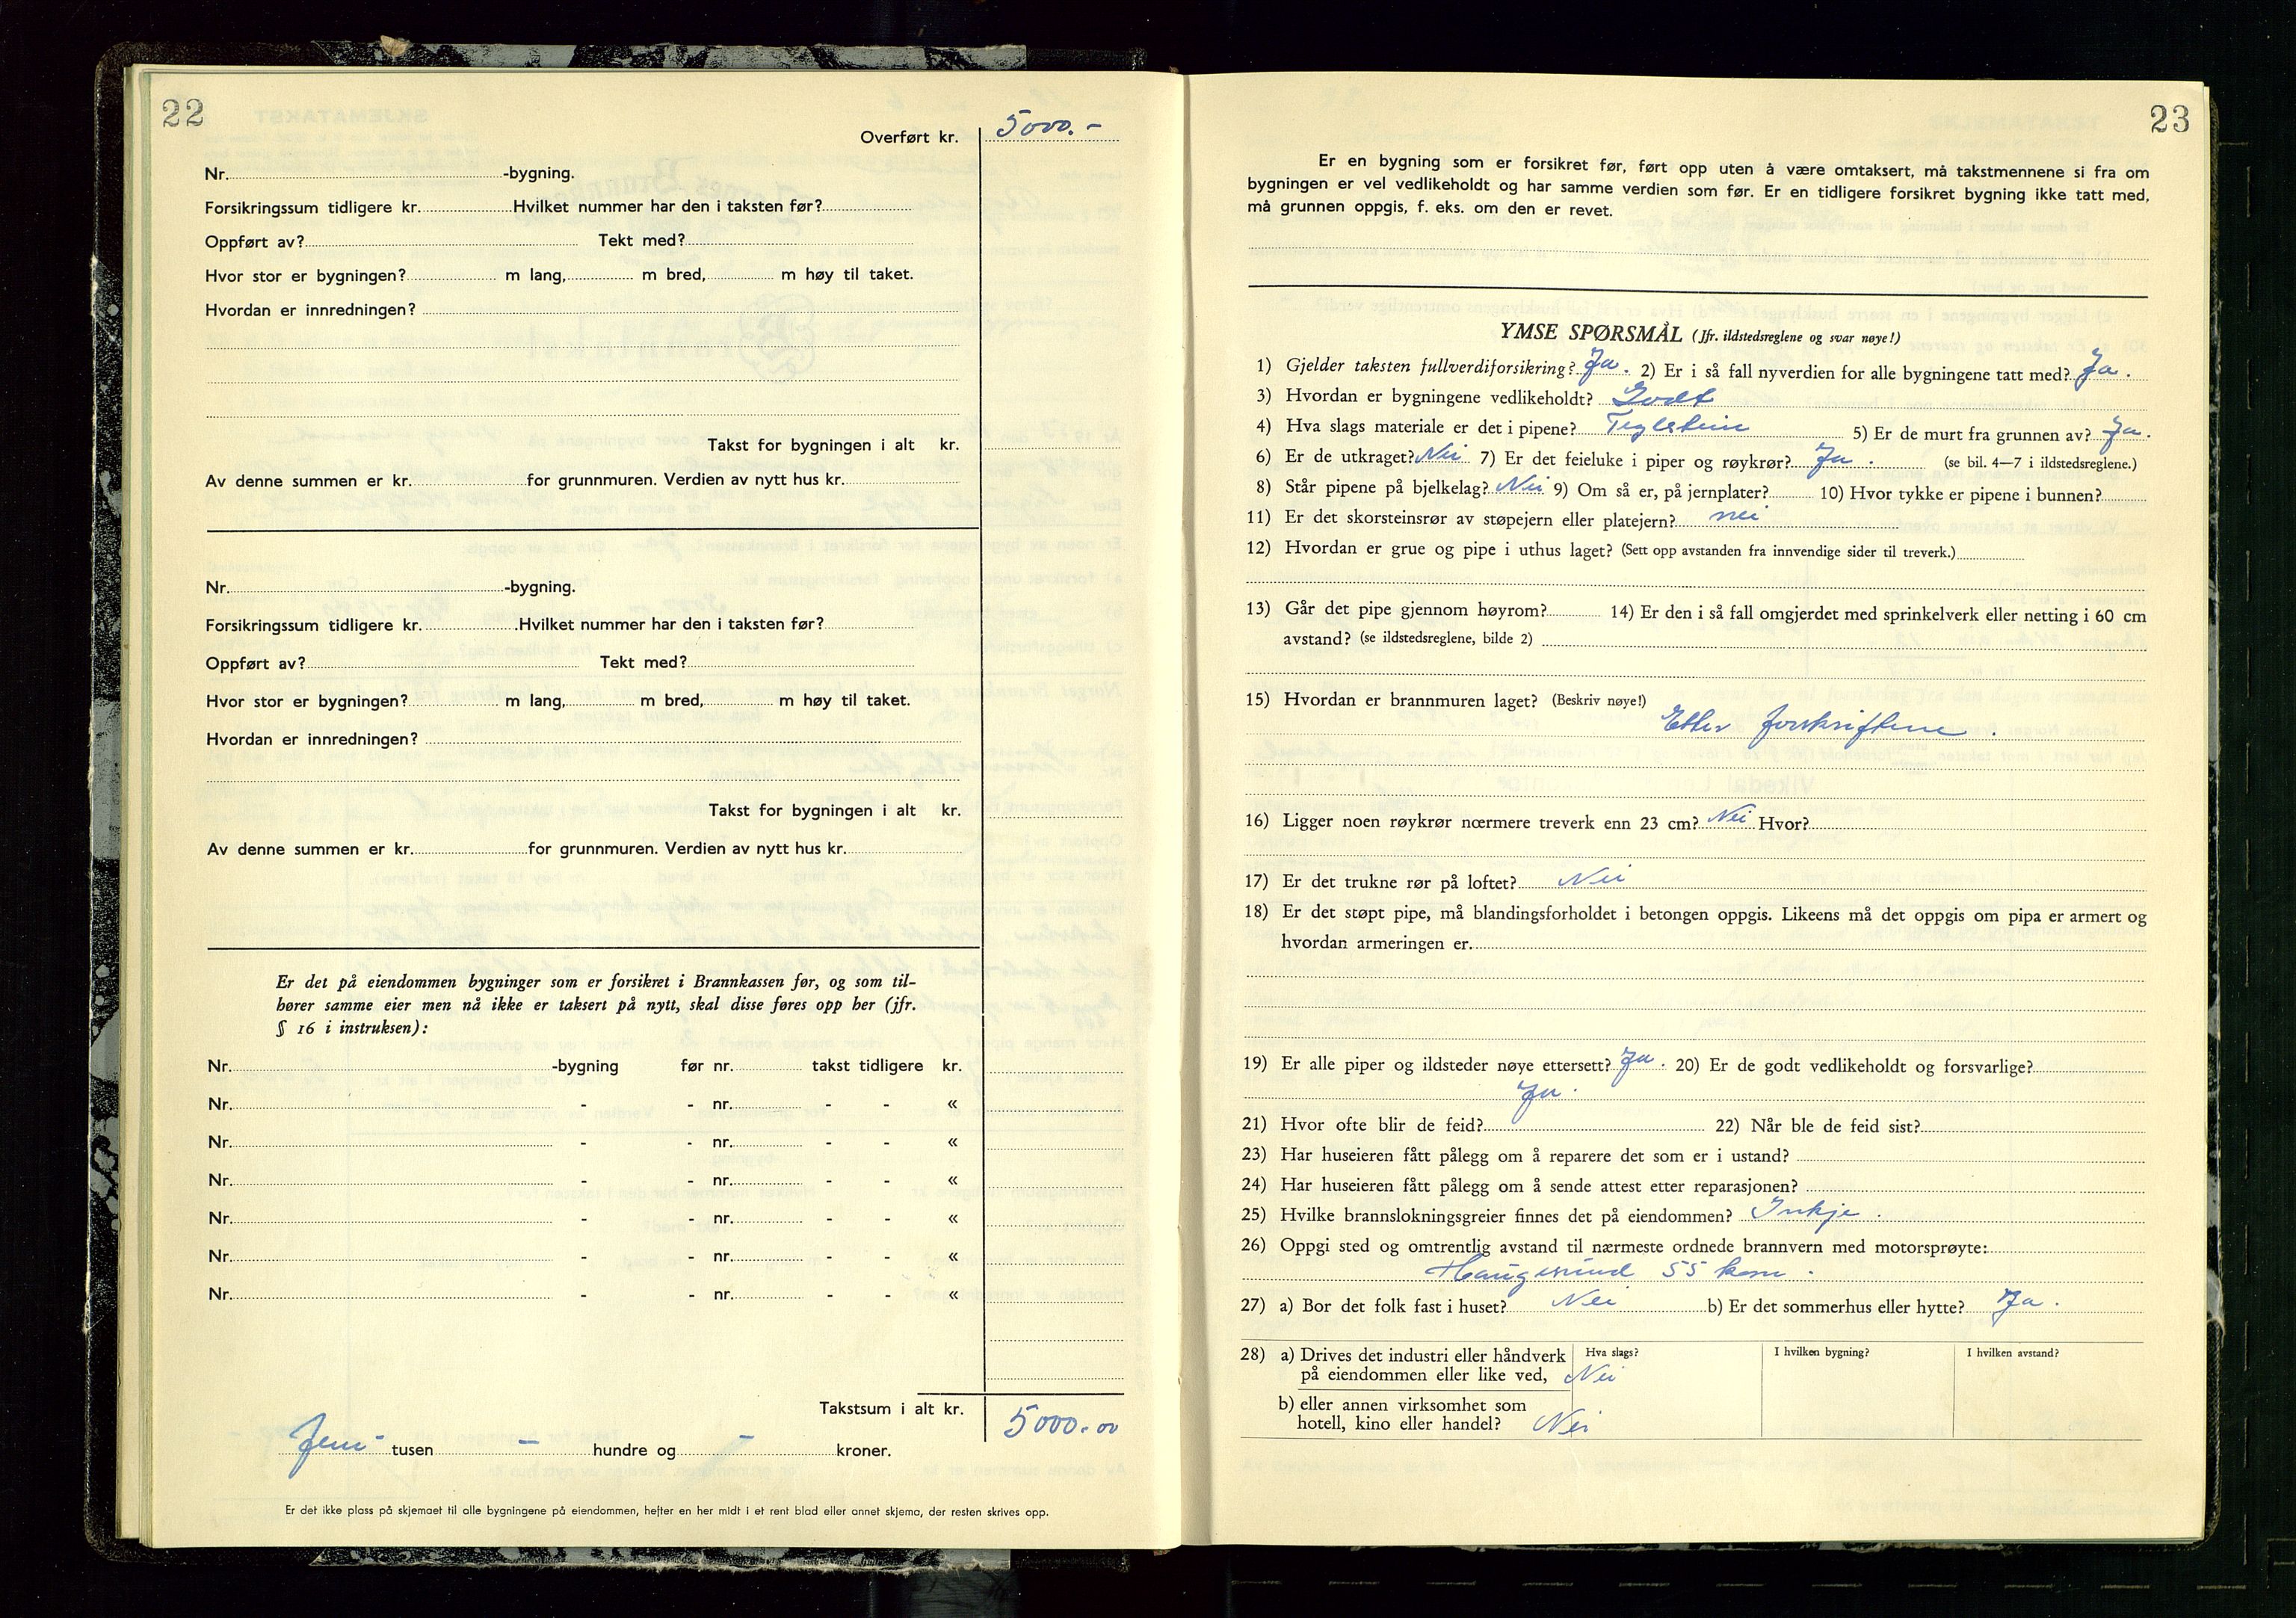 22
Overført kr. 5000.-
Nr. -bygning.
Forsikringssum tidligere kr. Hvilket nummer har den i taksten før?
Oppført av? Tekt med?
Hvor stor er bygningen? m lang, m bred, m høy til taket.
Hvordan er innredningen?
Takst for bygningen i alt kr.
Av denne summen er kr. for grunnmuren. Verdien av nytt hus kr.
Nr. -bygning.
Forsikringssum tidligere kr. Hvilket nummer har den i taksten før?
Oppført av? Tekt med?
Hvor stor er bygningen? m lang, m bred, m høy til taket.
Hvordan er innredningen?
Takst for bygningen i alt kr.
Av denne summen er kr. for grunnmuren. Verdien av nytt hus kr.
Er det på eiendommen bygninger som er forsikret i Brannkassen før, og som til-
hører samme eier men nå ikke er taksert på nytt, skal disse føres opp her (jfr.
§ 16 i instruksen):
Nr. -bygning før nr. takst tidligere kr.
Nr. - - nr. - - «
Nr. - - nr. - - «
Nr. - - nr. - - «
Nr. - - nr. - - «
Nr. - - nr. - - «
Nr. - - nr. - - «
Takstsum i alt kr. 5000.00
Fem - tusen - hundre og - kroner.
Er det ikke plass på skjemaet til alle bygningene på eiendommen, hefter en her midt i et rent blad eller annet skjema, der resten skrives opp.
23
Er en bygning som er forsikret før, ført opp uten å være omtaksert, må takstmennene si fra om
bygningen er vel vedlikeholdt og har samme verdien som før. Er en tidligere forsikret bygning ikke tatt med,
må grunnen oppgis, f. eks. om den er revet.
YMSE SPØRSMÅL (Jfr. ildstedsreglene og svar nøye!)
1) Gjelder taksten fullverdiforsikring? Ja. 2) Er i så fall nyverdien for alle bygningene tatt med? Ja.
3) Hvordan er bygningene vedlikeholdt? Godt
4) Hva slags materiale er det i pipene? Teglstein 5) Er de murt fra grunnen av? Ja.
6) Er de utkraget? Nei 7) Er det feieluke i piper og røykrør? Ja. (se bil. 4—7 i ildstedsreglene.)
8) Står pipene på bjelkelag? Nei 9) Om så er, på jernplater? 10) Hvor tykke er pipene i bunnen?
11) Er det skorsteinsrør av støpejern eller platejern? nei
12) Hvordan er grue og pipe i uthus laget? (Sett opp avstanden fra innvendige sider til treverk.)
13) Går det pipe gjennom høyrom? 14) Er den i så fall omgjerdet med sprinkelverk eller netting i 60 cm
avstand? (se ildstedsreglene, bilde 2)
15) Hvordan er brannmuren laget? (Beskriv nøye!)
Etter forskriftene.
16) Ligger noen røykrør nærmere treverk enn 23 cm? Nei Hvor?
17) Er det trukne rør på loftet? Nei
18) Er det støpt pipe, må blandingsforholdet i betongen oppgis. Likeens må det oppgis om pipa er armert og
hvordan armeringen er.
19) Er alle piper og ildsteder nøye ettersett? Ja. 20) Er de godt vedlikeholdt og forsvarlige?
Ja.
21) Hvor ofte blir de feid? 22) Når ble de feid sist?
23) Har huseieren fått pålegg om å reparere det som er i ustand?
24) Har huseieren fått pålegg om å sende attest etter reparasjonen?
25) Hvilke brannslokningsgreier finnes det på eiendommen? Inkje.
26) Oppgi sted og omtrentlig avstand til nærmeste ordnede brannvern med motorsprøyte:
Haugesund 55 km.
27) a) Bor det folk fast i huset? Nei b) Er det sommerhus eller hytte? Ja.
28) a) Drives det industri eller håndverk Hva slags? I hvilken bygning? I hvilken avstand?
på eiendommen eller like ved, Nei
b) eller annen virksomhet som
hotell, kino eller handel? Nei